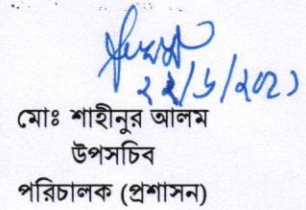 ২২/৬/২০২১
মোঃ শাহীনুর আলম
উপসচিব
পরিচালক (প্রশাসন)